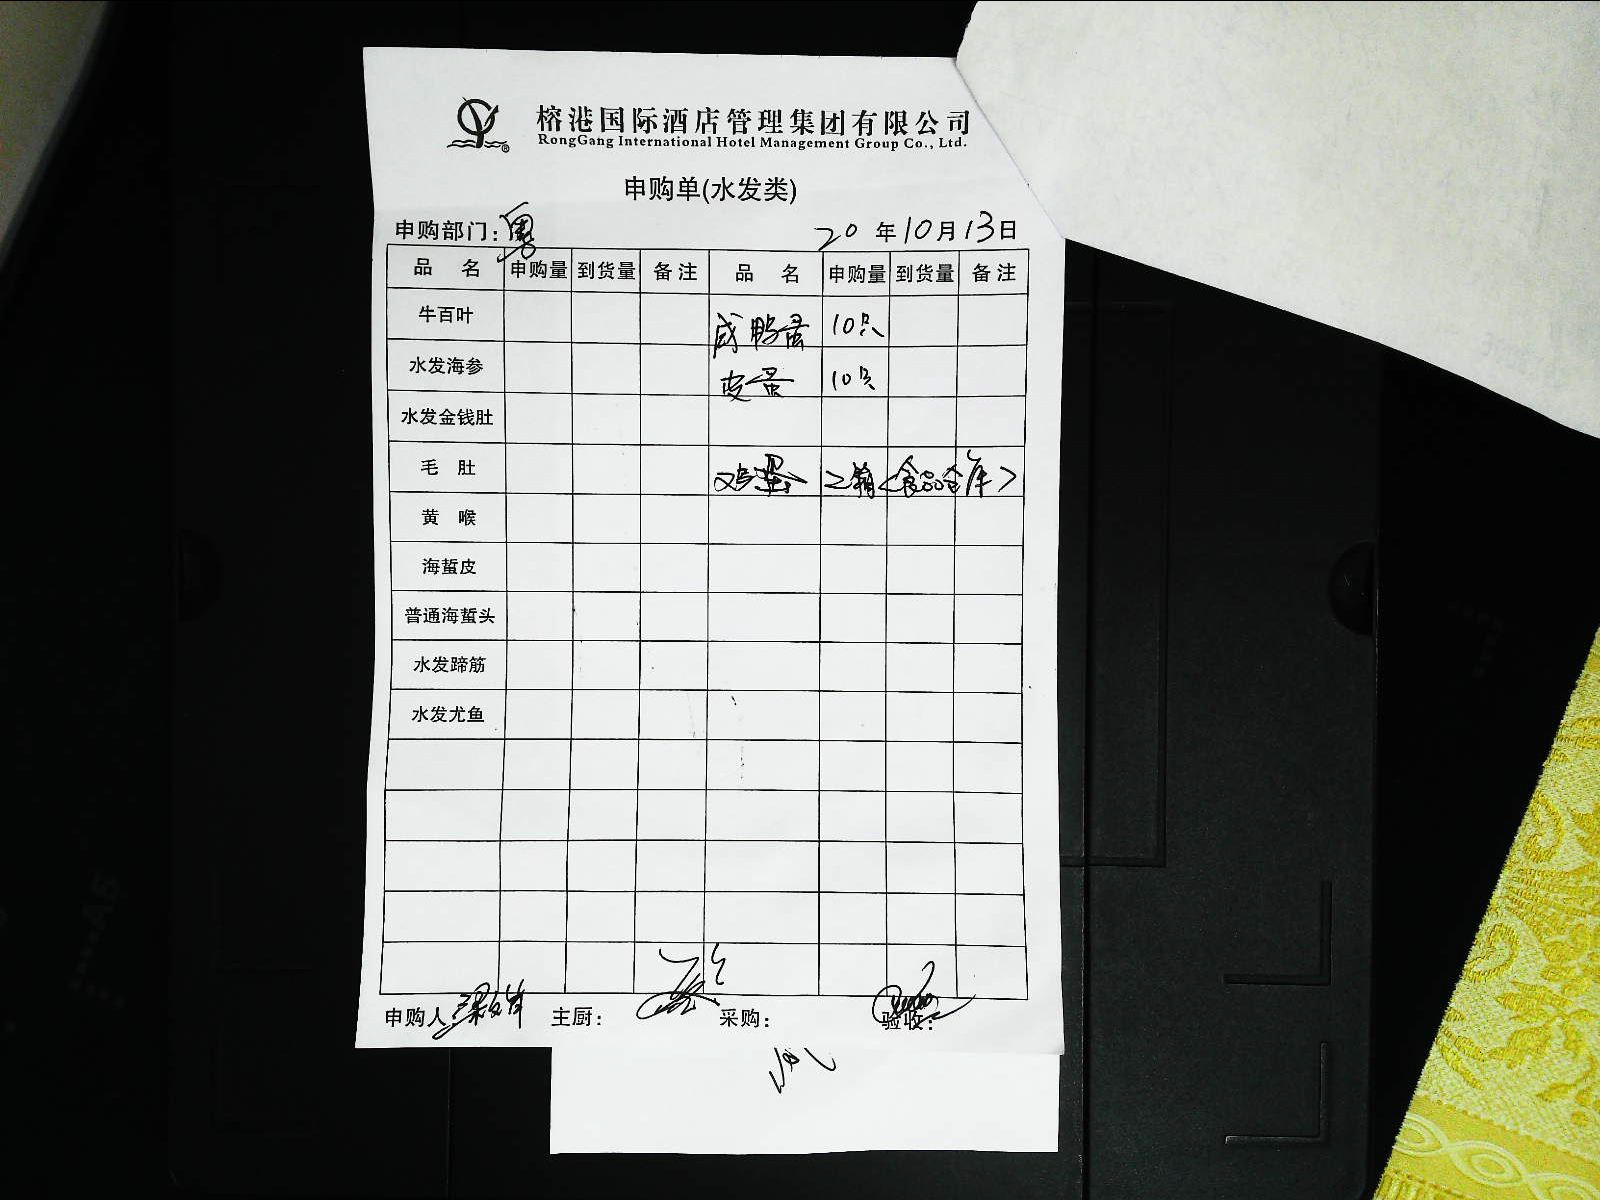 榕港国际酒店管理集团有限公司
RongGang International Hotel Management Group Co., Ltd.
申购单(水发类)
申购部门：粤 20年10月13日
品名 申购量 到货量 备注 品名 申购量 到货量 备注
牛百叶 咸鸭蛋 10只
水发海参 皮蛋 10只
水发金钱肚
毛肚 鸡蛋 2箱<食品仓库>
黄喉
海蜇皮
普通海蜇头
水发蹄筋
水发尤鱼
申购人 主厨： 采购： 验收：